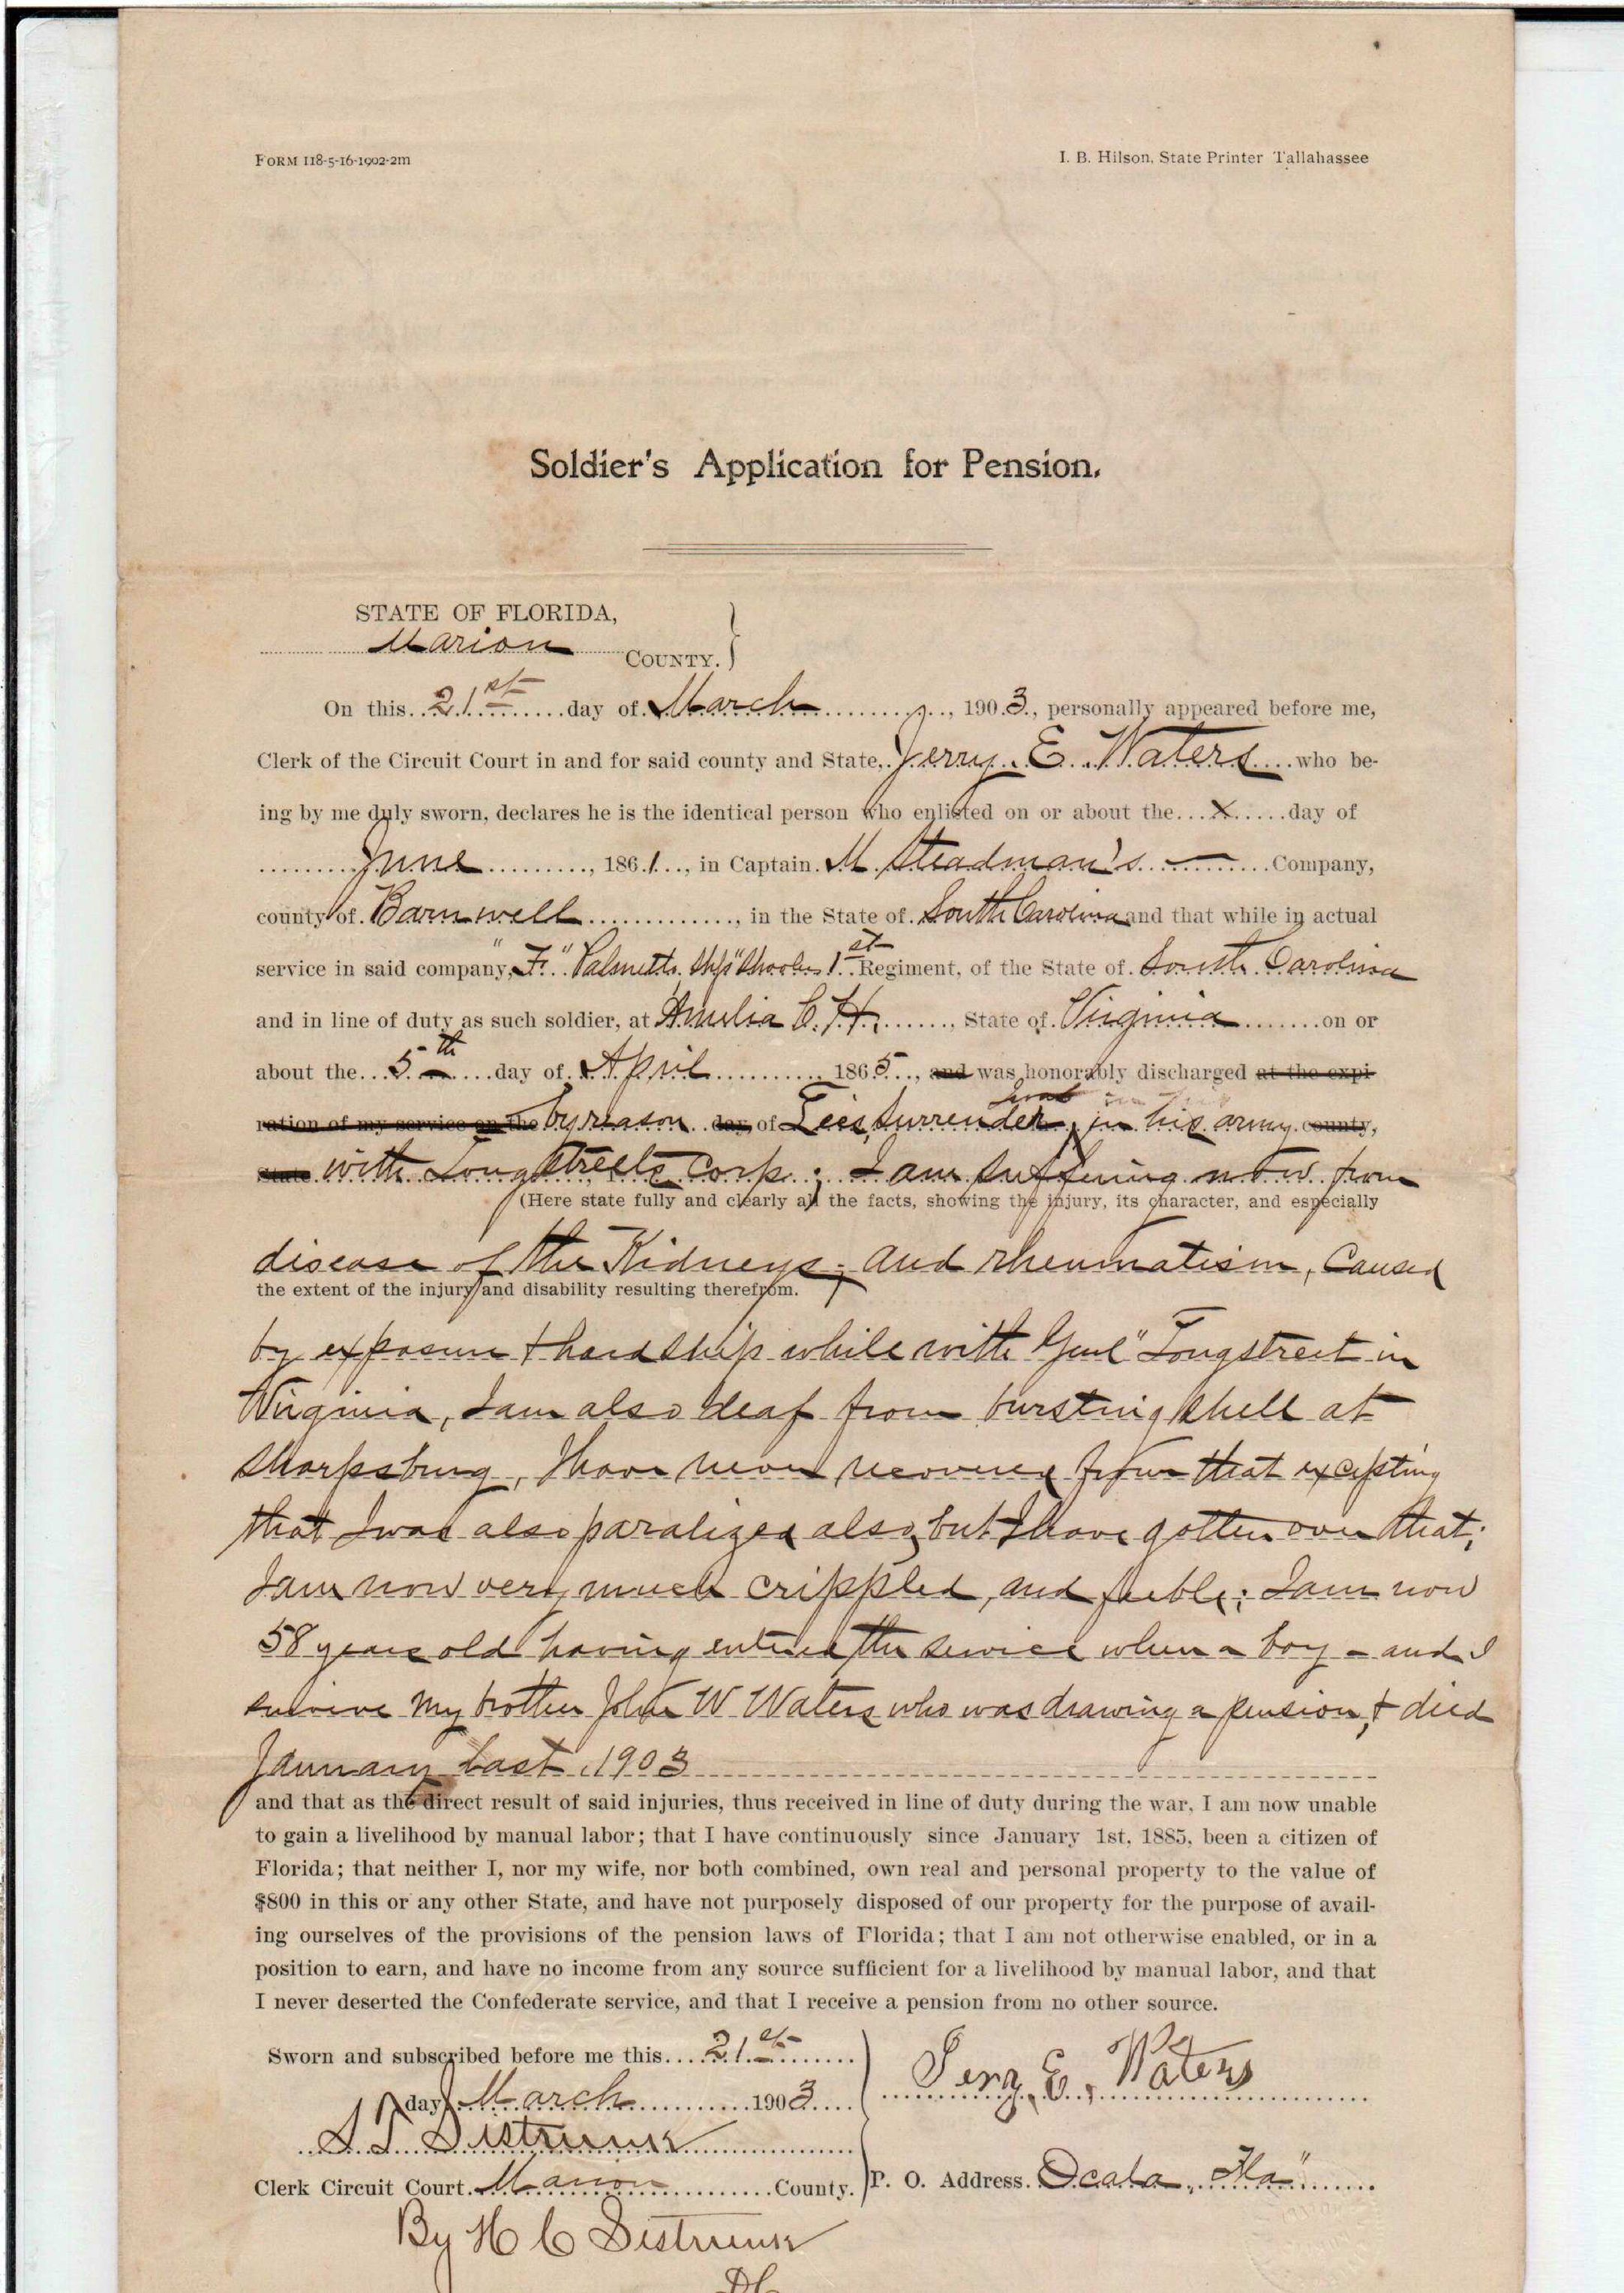 FORM 118-5-16-1902-2m
I. B. Hilson, State Printer Tallahassee
Soldier's Application for Pension.
STATE OF FLORIDA,
Marion COUNTY.
On this 21st day of March, 1903, personally appeared before me,
Clerk of the Circuit Court in and for said county and State, Jerry E. Waters who be-
ing by me duly sworn, declares he is the identical person who enlisted on or about the X day of
June, 1861, in Captain M Steadman's — Company,
county of Barnwell, in the State of South Carolina and that while in actual
service in said company, "F" Palmetto Shp" Shooters 1st Regiment, of the State of South Carolina
and in line of duty as such soldier, at Amelia C. H., State of Virginia on or
about the 5th day of April 1865, and was honorably discharged at the expi
ration of my service on the by reason day of Lees Surrender, in his army county,
state with Longstreets Corp; I am suffering now from
(Here state fully and clearly all the facts, showing the injury, its character, and especially
disease of the Kidneys; and rheumatism, Caused
the extent of the injury and disability resulting therefrom.
by exposure & hardship while with Genl" Longstreet in
Virginia, I am also deaf from bursting shell at
Sharpsburg, I have never recovered from that excepting
that I was also paralized also, but I have gotten over that;
I am now very much crippled, and feeble; I am now
58 years old having entered the service when a boy - and I
survive my brother John W Waters who was drawing a pension, & died
January last, 1903
and that as the direct result of said injuries, thus received in line of duty during the war, I am now unable
to gain a livelihood by manual labor; that I have continuously since January 1st, 1885, been a citizen of
Florida; that neither I, nor my wife, nor both combined, own real and personal property to the value of
$800 in this or any other State, and have not purposely disposed of our property for the purpose of avail-
ing ourselves of the provisions of the pension laws of Florida; that I am not otherwise enabled, or in a
position to earn, and have no income from any source sufficient for a livelihood by manual labor, and that
I never deserted the Confederate service, and that I receive a pension from no other source.
Sworn and subscribed before me this 21st
day March 1903
Jery E. Waters
S T Sistrunk
Clerk Circuit Court Marion County.
P. O. Address. Ocala, Fla"
By H C Sistrunk
DC